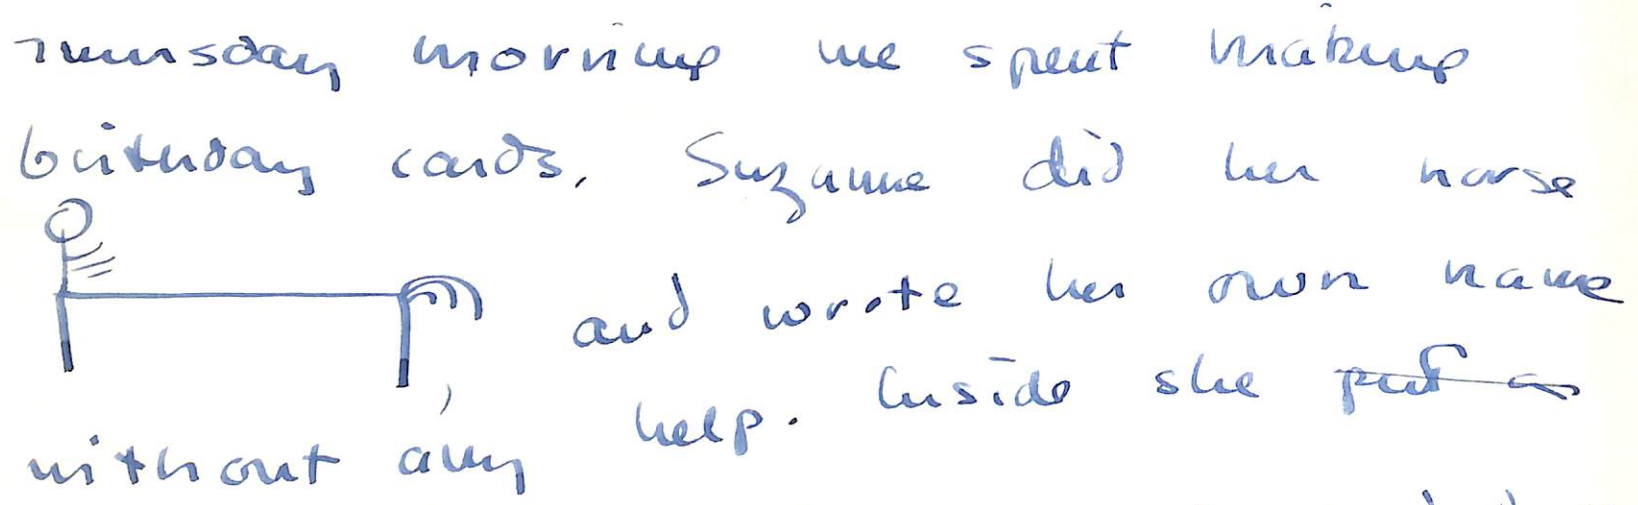 Thursday morning we spent making
birthday cards. Suzanne did her horse
, and wrote her own name
without any help. Inside she put a